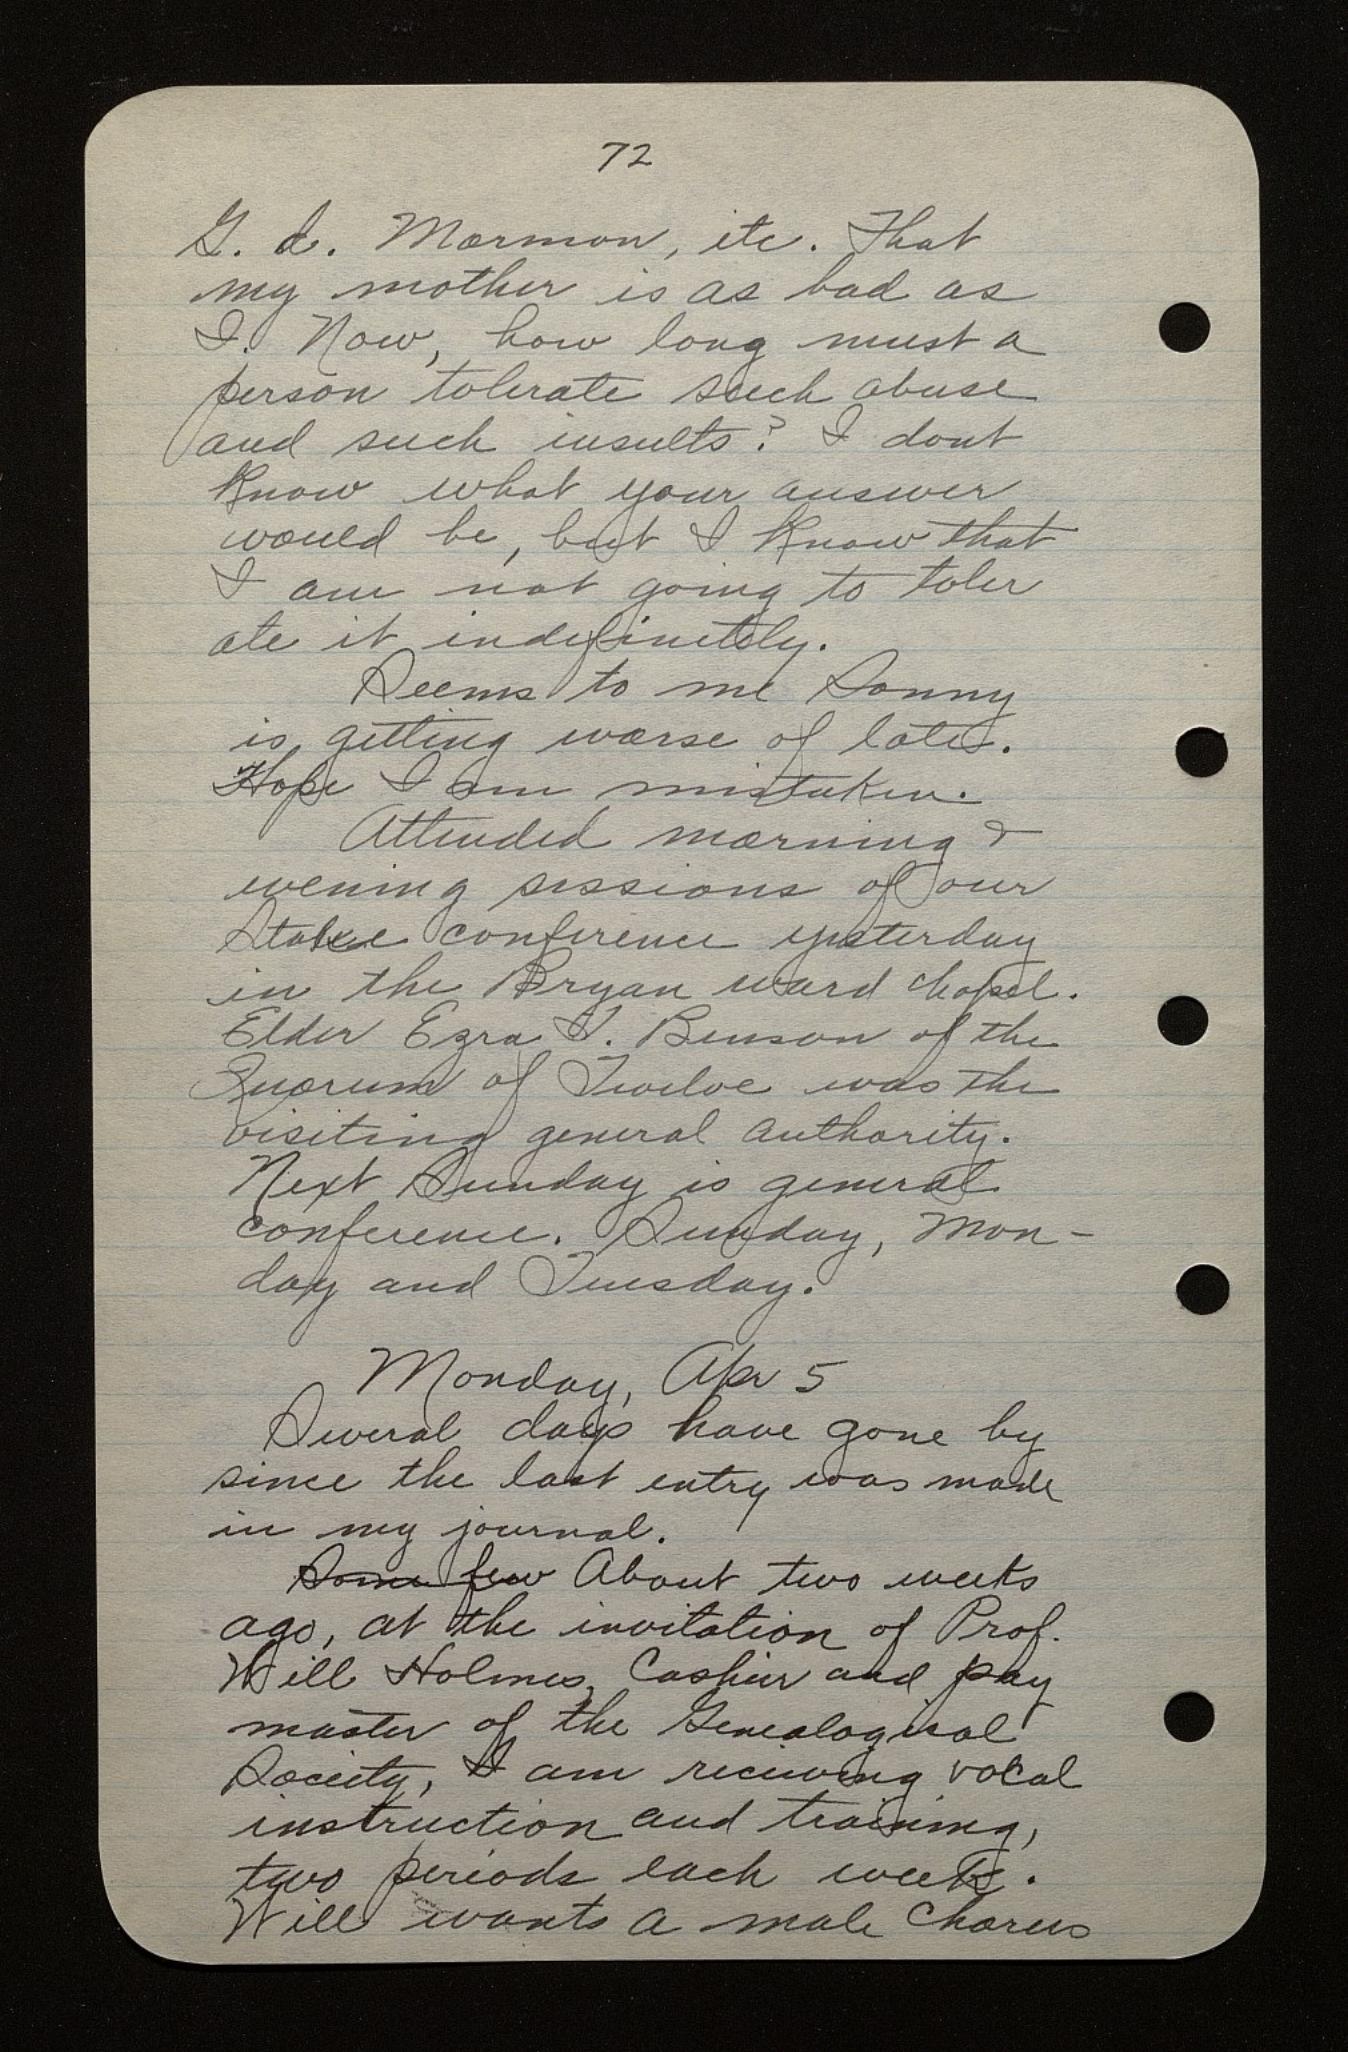 72
G. d. Mormon, etc. That
my mother is as bad as
I. Now, how long must a
person tolerate such abuse
and such insults? I dont
know what your answer
would be, but I know that
I am not going to toler
ate it indefinitely.
Seems to me Sonny
is getting worse of late.
Hope I am mistaken.
Attended morning &
evening sessions of our
Stake conference yesterday
in the Bryan ward chapel.
Elder Ezra T. Benson of the
Quorum of Twelve was the
visiting general authority.
Next Sunday is general
conference. Sunday, Mon-
day and Tuesday.
Monday, Apr 5
Several days have gone by
since the last entry was made
in my journal.
Some few About two weeks
ago, at the invitation of Prof.
Will Holmes, Cashier and pay
master of the Genealogical
Society, I am receiving vocal
instruction and training,
two periods each week.
Will wants a male chorus